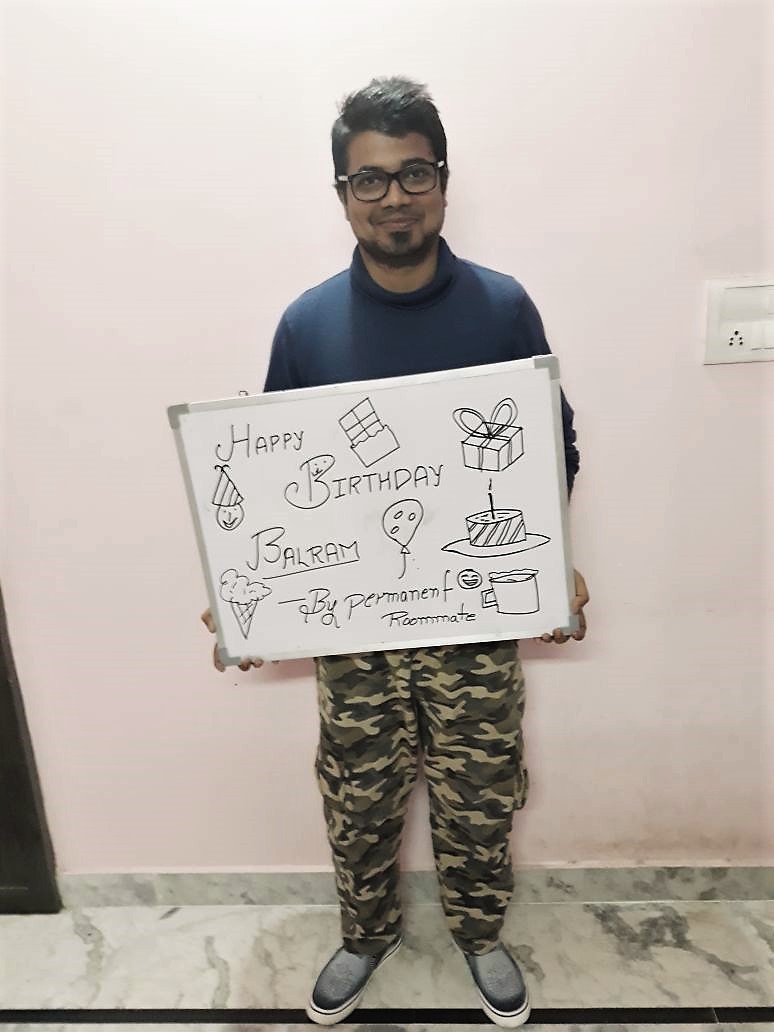 HAPPY
BIRTHDAY
BALRAM
- By permanent
Roommate